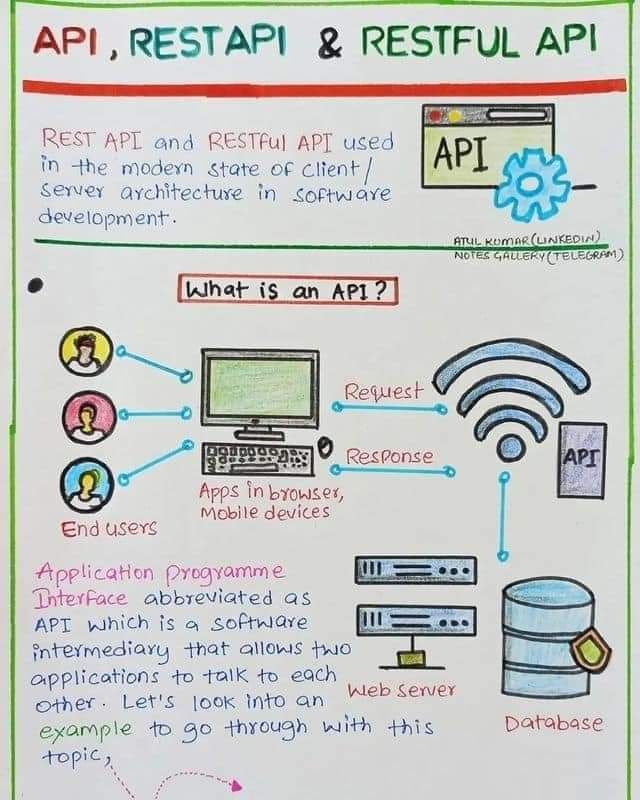 API, REST API & RESTFUL API
REST API and RESTful API used
in the modern state of client/
server architecture in software
development.
API
ATUL KUMAR (LINKEDIN)
NOTES GALLERY (TELEGRAM)
What is an API?
Request
Response
API
Apps in browser,
Mobile devices
End users
Application programme
Interface abbreviated as
API which is a software
intermediary that allows two
applications to talk to each
other. Let's look into an
example to go through with this
topic,
Web Server
Database